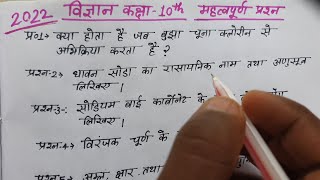 2022 विज्ञान कक्षा-10th महत्वपूर्ण प्रश्न
प्र०1→ क्या होता है जब बुझा चूना क्लोरीन से
अभिक्रिया करता है?
प्रश्न-2→ धावन सोडा का रासायनिक नाम तथा अणुसूत्र
लिखिए।
प्रश्न-3→ सोडियम बाई कार्बोनेट के
लिखिए।
प्रश्न-4→ विरंजक चूर्ण के
प्रश्न-5→ अम्ल, क्षार तथा